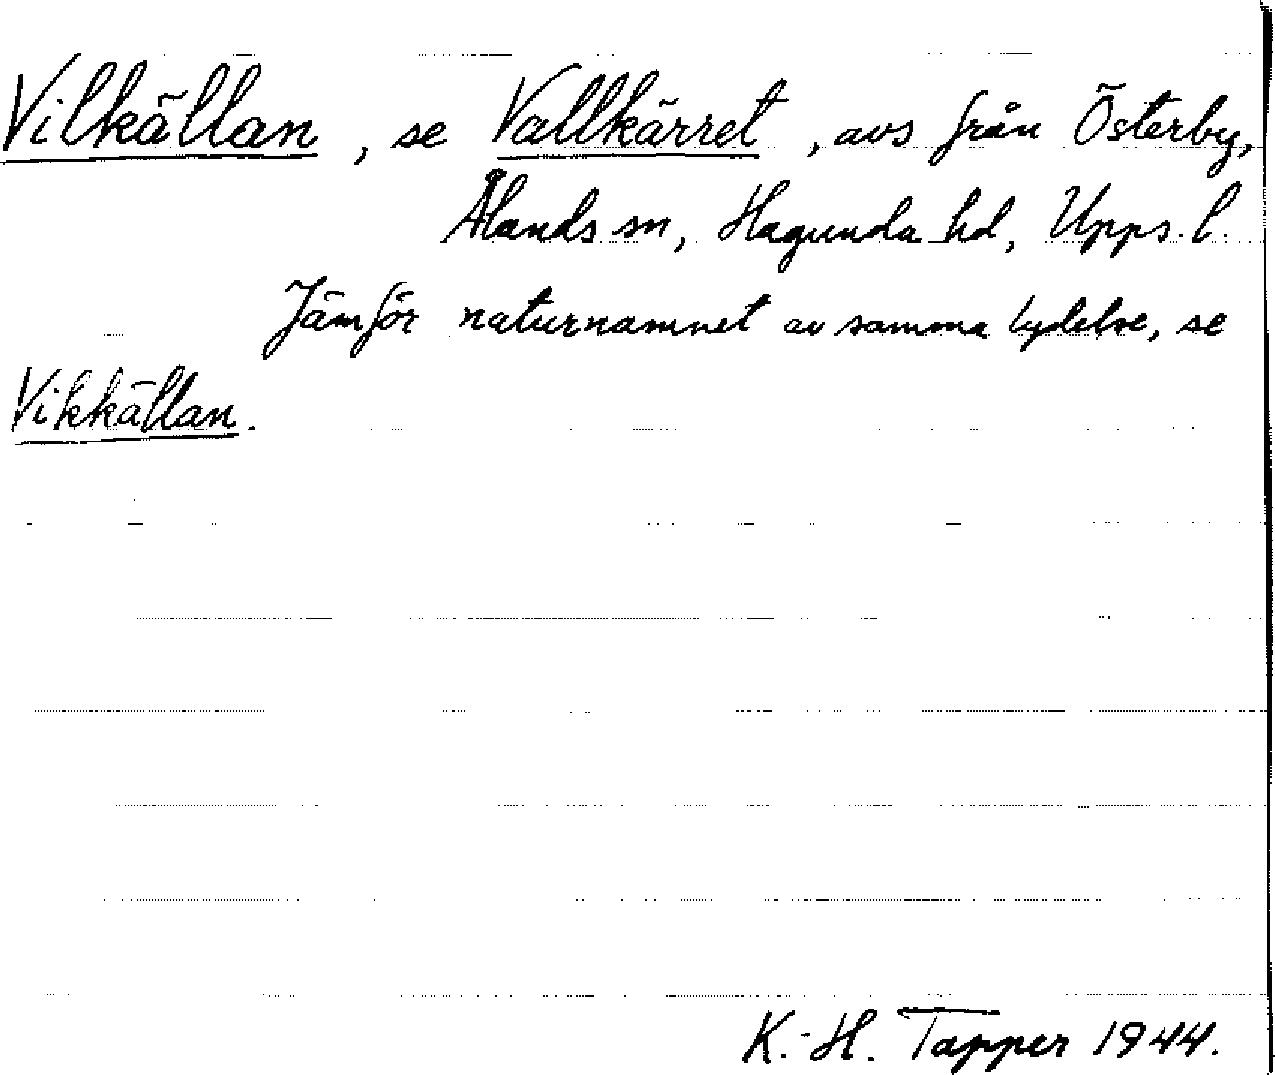 Vilkällan, se Vallkärret, avs från Österby,
Ålands sn, Hagunda hd, Upps. l.
Jämför naturnamnet av samma lydelse, se
Vikkällan.
K.-H. Tapper 1944.